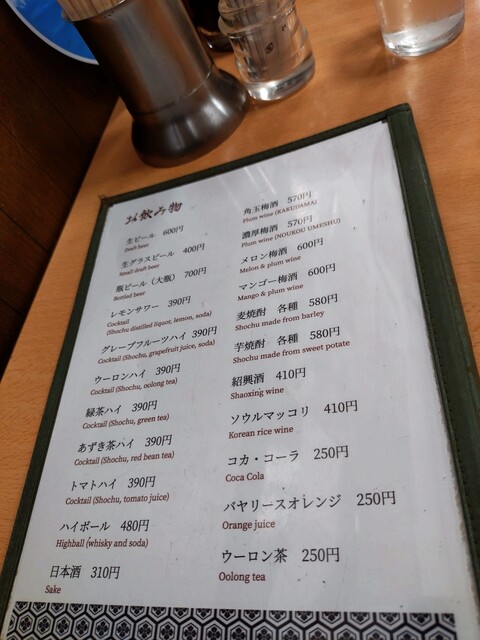 お飲み物
生ビール 600円
Draft beer
生グラスビール 400円
Small draft beer
瓶ビール（大瓶） 700円
Bottled beer
レモンサワー 390円
Cocktail
(Shochu distilled liquor, lemon, soda)
グレープフルーツハイ 390円
Cocktail (Shochu, grapefruit juice, soda)
ウーロンハイ 390円
Cocktail (Shochu, oolong tea)
緑茶ハイ 390円
Cocktail (Shochu, green tea)
あずき茶ハイ 390円
Cocktail (Shochu, red bean tea)
トマトハイ 390円
Cocktail (Shochu, tomato juice)
ハイボール 480円
Highball (whisky and soda)
日本酒 310円
Sake
角玉梅酒 570円
Plum wine (KAKUDAMA)
濃厚梅酒 570円
Plum wine (NOUKOU UMESHU)
メロン梅酒 600円
Melon & plum wine
マンゴー梅酒 600円
Mango & plum wine
麦焼酎 各種 580円
Shochu made from barley
芋焼酎 各種 580円
Shochu made from sweet potate
紹興酒 410円
Shaoxing wine
ソウルマッコリ 410円
Korean rice wine
コカ・コーラ 250円
Coca Cola
バヤリースオレンジ 250円
Orange juice
ウーロン茶 250円
Oolong tea